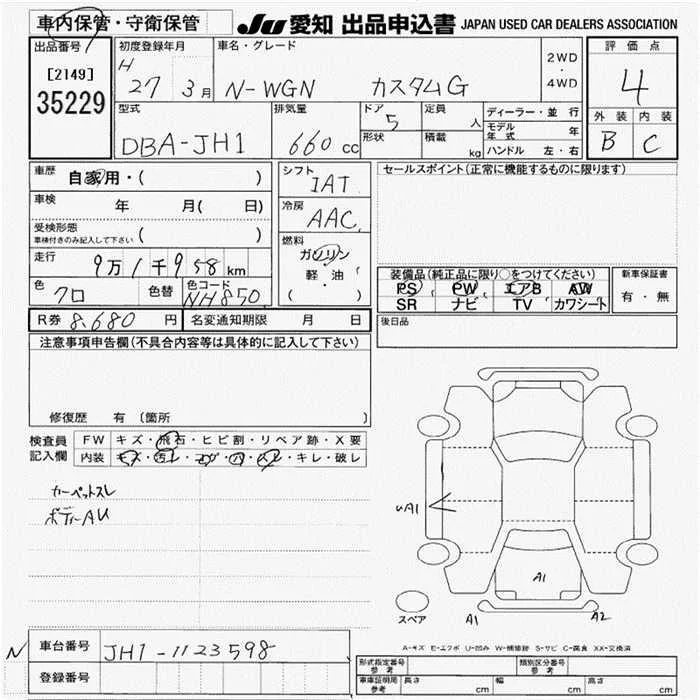 車内保管・守衛保管
JU 愛知 出品申込書 JAPAN USED CAR DEALERS ASSOCIATION
出品番号 [2149] 35229
初度登録年月 H 27 3月
車名・グレード N-WGN カスタムG
2WD・4WD
評価点 4
外装 B 内装 C
型式 DBA-JH1
排気量 660cc
ドア 5 形状
定員 人 積載 kg
ディーラー・並行
モデル年式 年
ハンドル 左・右
車歴 自家用・( )
車検 年 月( 日)
受検形態 車検付きのみ記入して下さい ( )
走行 9万1千958km
色 クロ 色替 色コード NH850
シフト IAT
冷房 AAC
燃料 ガソリン・軽油 ( )
セールスポイント(正常に機能するものに限ります)
装備品(純正品に限り○をつけてください)
PS PW エアB AW
SR ナビ TV カワシート
新車保証書 有・無
R券 8,680円 名変通知期限 月 日
後日品
注意事項申告欄(不具合内容等は具体的に記入して下さい)
修復歴 有〔箇所 〕
検査員記入欄
FW キズ・飛石・ヒビ割・リペア跡・X要
内装 キズ・汚レ・コゲ・穴・スレ・キレ・破レ
カーペットスレ
ボディーAU
uA1
A1
スペア
A1 A2
A-キズ E-エクボ U-凹み W-補修跡 S-サビ C-腐食 XX-交換済
N 車台番号 JH1-1123598
登録番号
形式指定番号 参考 類別区分番号 参考
車庫証明局 参考 長さ cm 幅 cm 高さ cm